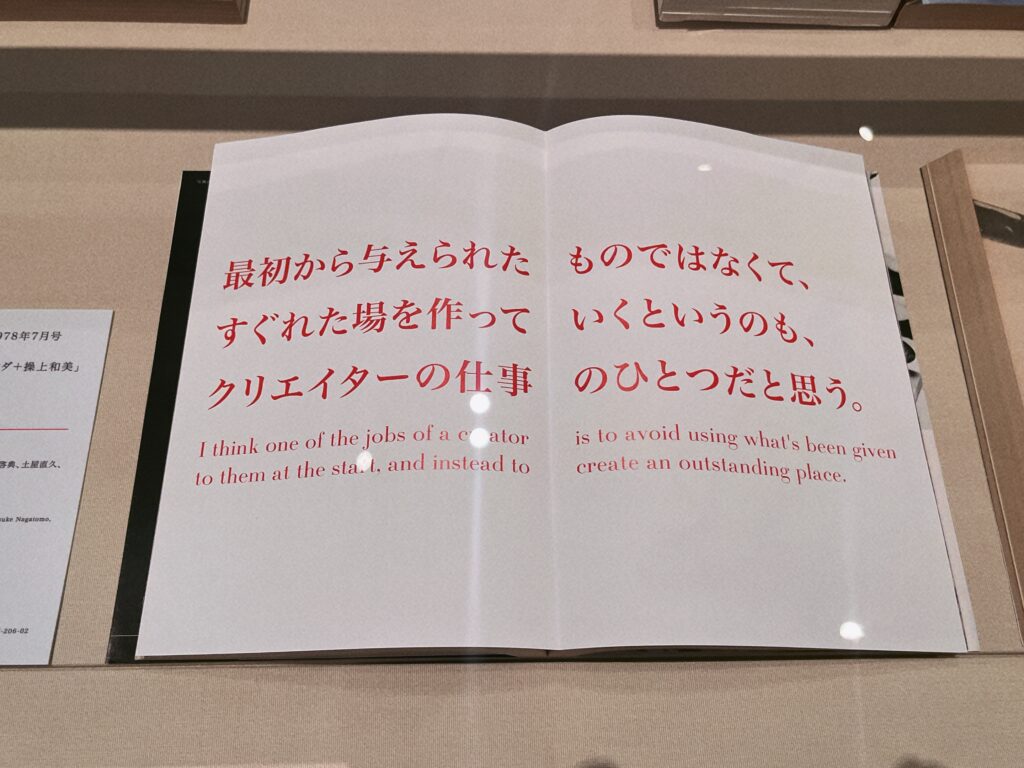 最初から与えられたものではなくて、
すぐれた場を作っていくというのも、
クリエイターの仕事のひとつだと思う。
I think one of the jobs of a creator is to avoid using what's been given
to them at the start, and instead to create an outstanding place.
978年7月号
ダ+操上和美」
啓典、土屋直久、
suke Nagatomo,
-206-02